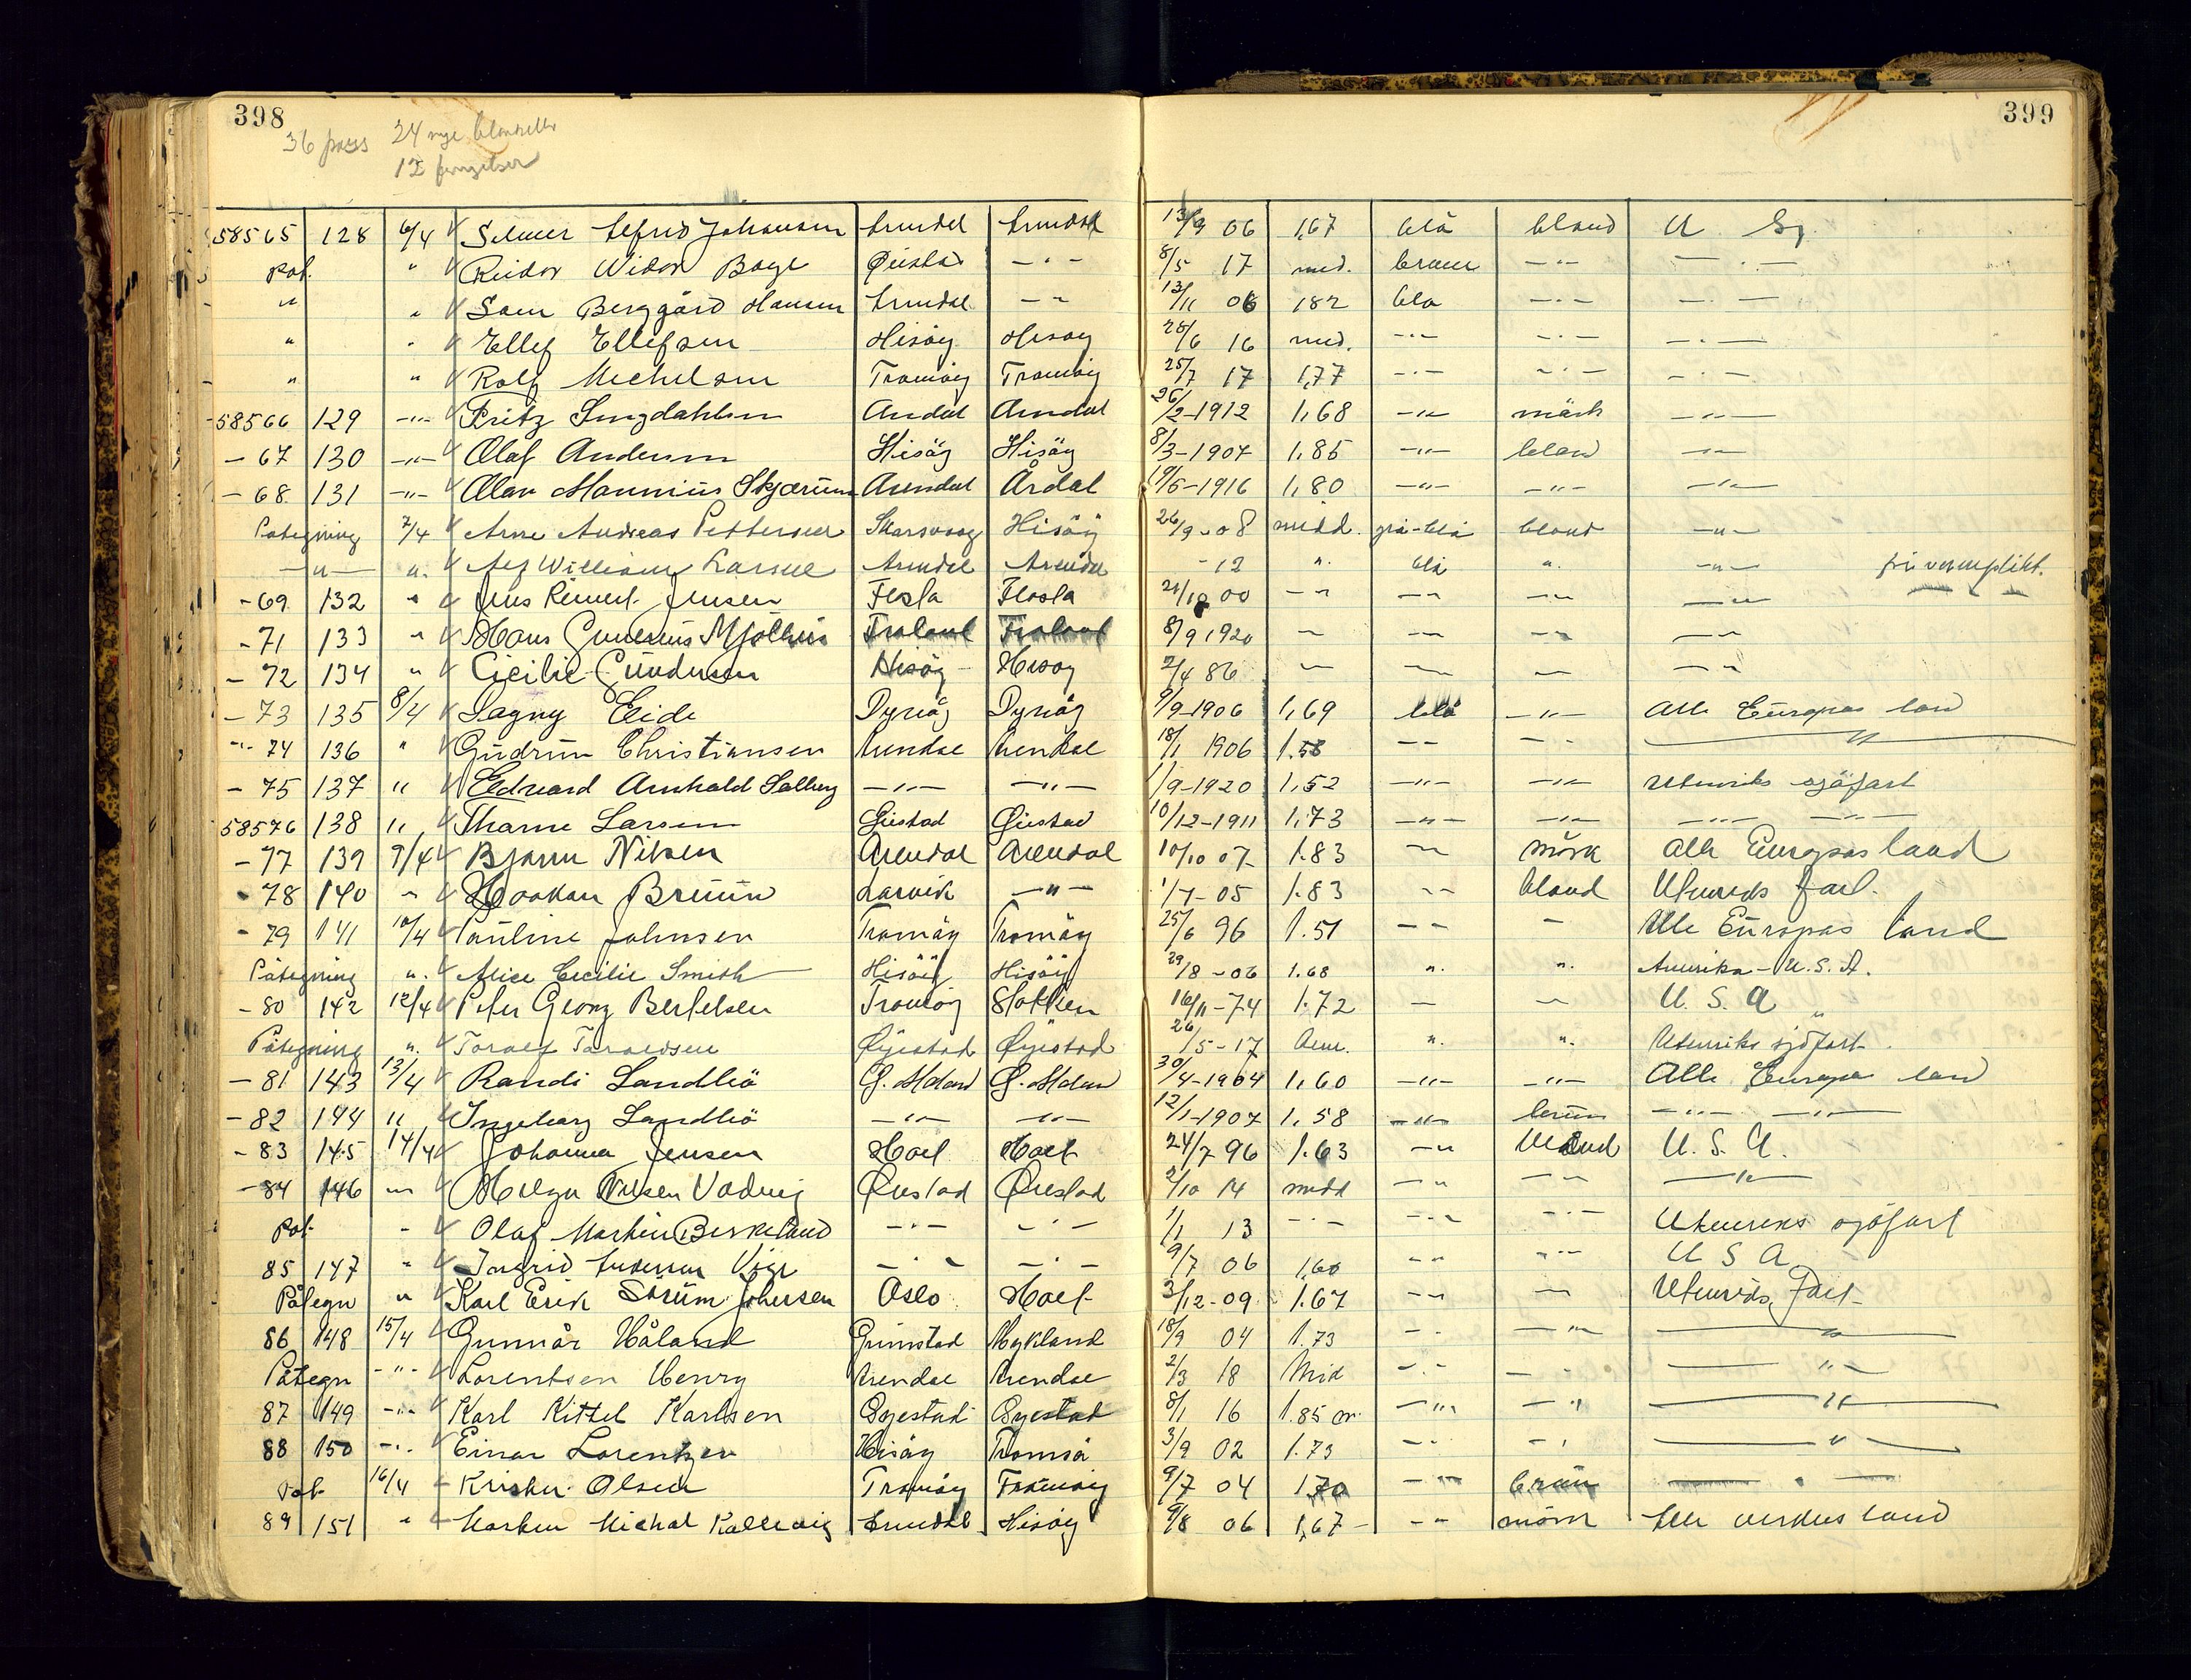 398
399
36 pass 24 nye blanketter
12
58565 128 6/4 Selmer Alfred Johansen Arendal Arendal 13/9 06 1,67 blå blond U Sj.
Pat. " Reidar Vidar Boye Øiestad -"- 8/5 17 med. braun -"- -"-
" " Sam Berggård Hansen Arendal -"- 13/11 06 182 blå -"- -"-
" " Ellef Ellefsen Hisöy Hisøy 28/6 16 med. -"- -"- -"-
" " Rolf Michelsen Tromöy Tromöy 25/7 17 1,77 -"- -"- -"-
58566 129 -"- Fritz Lingdahlsen Arendal Arendal 26/2-1912 1,68 -"- mörk -"-
- 67 130 -"- Olaf Andersen Hisöy Hisöy 8/3-1907 1,85 -"- blond -"-
- 68 131 -"- Olav Mannius Skjærum Arendal Årdal 19/5-1916 1,80 -"- -"- -"-
Påtegning 7/4 Arne Andreas Pettersen Skarsvaag Hisöy 26/9-08 midd. grå-blå blond -"-
-"- ". Alf William Larsen Arendal Arendal -12 ". blå ". -"- fri vernplikt.
- 69 132 " Jens Reinert Jensen Flosta Flosta 21/10 00 -"- -"- -"- -"-
- 71 133 " Hans Mjölhus Froland Froland 8/9 1920 - -"- -"- -"-
- 72 134 " Cicilie Gundersen Hisöy Hisøy 2/4 86 - - - -"-
- 73 135 8/4 Eide Dypvåg Dypvåg 9/9-1906 1,69 blå -"- Alle Europas land
-"- 74 136 " Gudrun Christiansen Arendal Arendal 18/1 1906 1.58 -- -"- "
- 75 137 " Edvard Arnhold Solberg -"- -"- 1/9-1920 1,52 -"- -"- Utenriks sjöfart
58576 138 " Tharne Larsen Öiestad Öiestad 10/12-1911 1,73 -"- -"- -"- -"-
- 77 139 9/4 Bjarne Nilsen Arendal Arendal 10/10 07 1.83 -"- mörk Alle Europas land
- 78 140 " Haakon Bruun Larvik -"- 1/7-05 1.83 -- blond Utenriks fart.
- 79 141 10/4 Pauline Johnsen Tromöy Tromöy 25/6 96 1.51 -- - Alle Europas land
Påtegning ". Alice Cecilie Smith Hisöy Hisöy 29/8-06 1.68 ". ". Amerika - U.S.A.
- 80 142 12/4 Peter Georg Bertelsen Tromöy Stokken 16/11-74 1.72 - - U.S.A "
Påtegning ". Toralf Taraldsen Øyestad Øyestad 26/5-17 ". ". Utenriks sjöfart.
- 81 143 13/4 Randi Sandliö G. Moland G. Moland 30/4-1904 1,60 -"- -"- Alle Europas land
- 82 144 " Ingeborg Sandliö -"- -"- 12/1-1907 1,58 -"- brun -"- -"-
- 83 145 14/4 Johanna Jensen Holt Holt 24/7 96 1.63 -"- blond U.S.A.
- 84 146 -"- Helga Nilsen Vadvig Øiestad Øiestad 2/10 14 midd -"- -"- -"-
Pat. " Olaf Martin Birkeland -"- -"- 1/1 13 -"- -"- -"- Utenriks sjöfart
85 147 " Ingrid Andersen Vige -"- -"- 9/7 06 1,60 -"- -"- U S A
Påtegn " Karl Erik Sörum Johnsen Oslo Holt 3/12-09 1.67 -"- - Utenriks fart
86 148 15/4 Gunnar Håland Grimstad Mykland 18/9 04 1.73 -"- -"- "
Påtegn -"- Lorentsen Henry Arendal Arendal 2/3 18 Mid -"- - " -"-
87 149 -"- Karl Kittel Karlsen Øyestad Øyestad 8/1 16 1.85 m. -"- -"- "
88 150 -"- Einar Lorentzen Hisöy Tromsö 3/9 02 1.73 -"- -"- "
Pat. 16/4 Kristen Olsen Tromöy Tromöy 9/7 04 170 -"- brun -"-
89 151 " Morten Michal Kallevig Arendal Hisöy 9/8 06 1,67 -"- mörk Alle verdens land